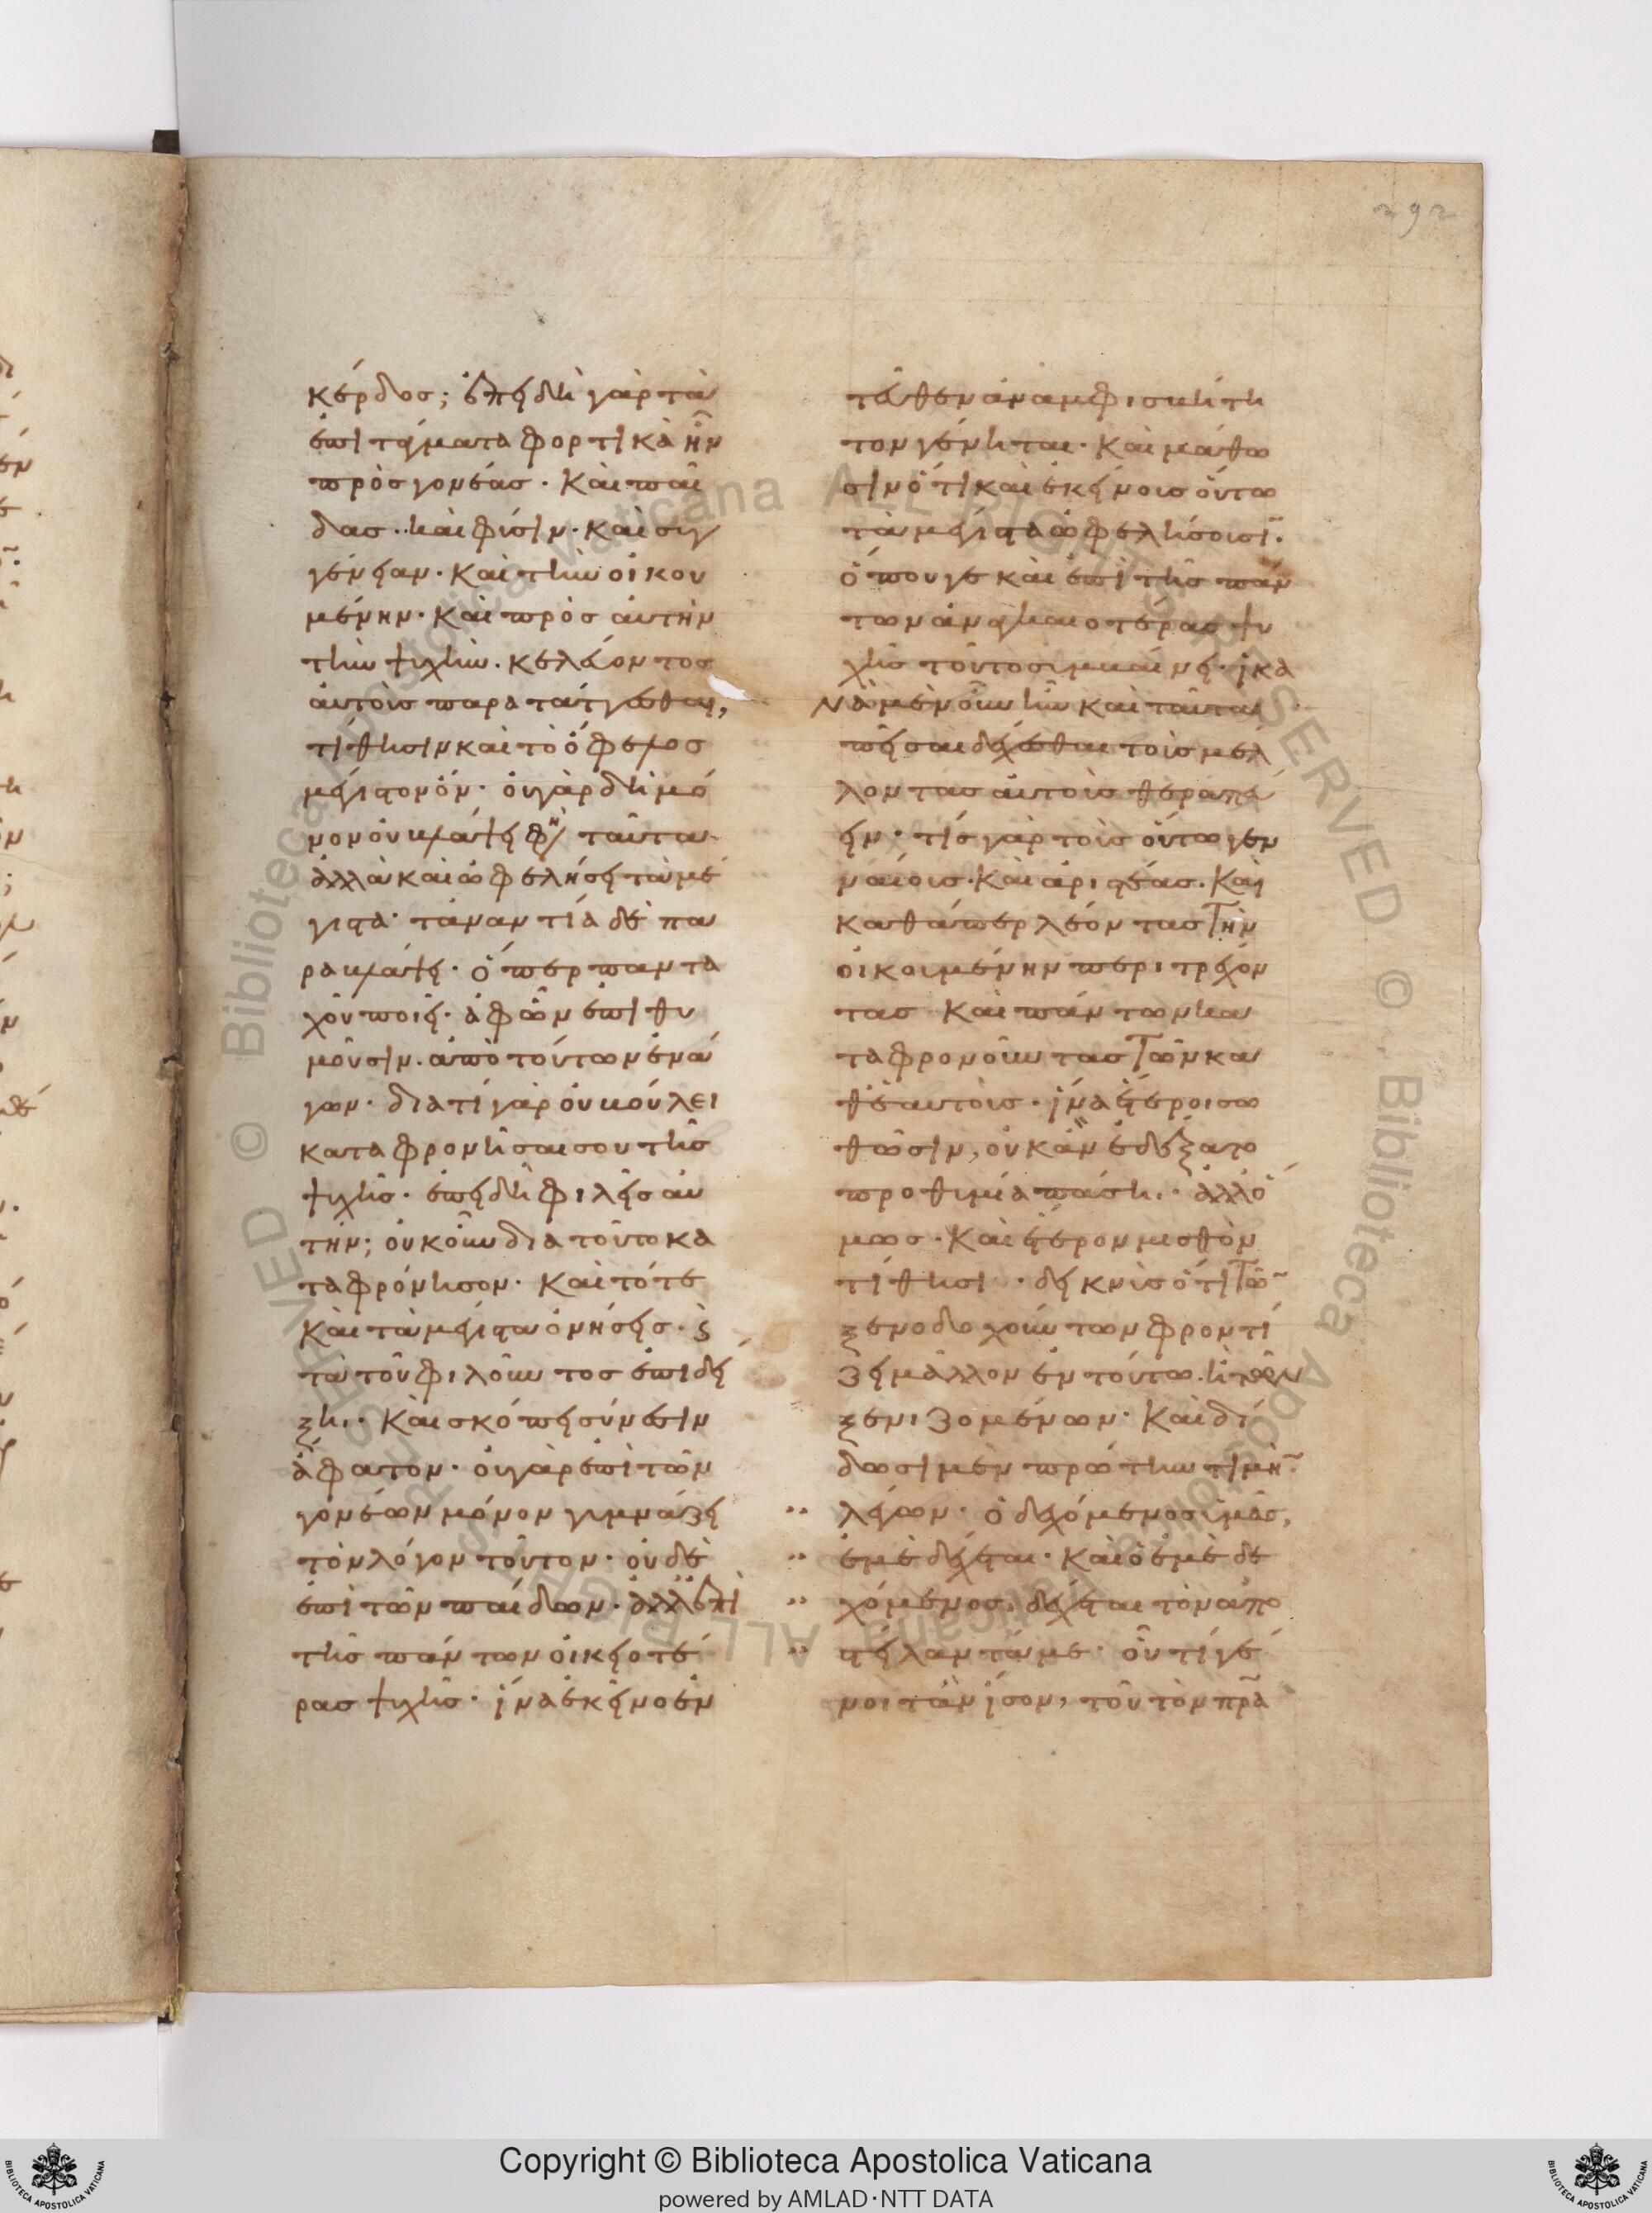 292
κέρδος; ἐπειδὴ γὰρ τὰ
ἐπιτάγματα φορτικὰ ἦν
πρὸς γονέας· καὶ παῖ
δας· καὶ φύσιν· καὶ συγ
γένειαν· καὶ τὴν οἰκου
μένην· καὶ πρὸς αὐτὴν
τὴν ψυχὴν· κελεύοντος
αὐτοῖς παρατάττεσθαι,
τίθησιν καὶ τὸ ὄφελος
μεῖζον ὄν· οὐ γὰρ δὴ μό
νον οὐ βλάψει φη ταῦτα
ἀλλὰ καὶ ὠφελήσει τὰ μέ
γιστα· τἀναντία δὲ πα
ραβλάψει· ὅπερ πανταχοῦ
χοῦ ποιεῖ· ἀφ ὧν ἐπιθυ
μοῦσιν· ἀπὸ τούτων ἐνά
γων· διατί γὰρ οὐ βούλει
καταφρονῆσαι σου τῆς
ψυχῆς· ἐπειδὴ φιλεῖς αὐ
τήν; οὐκοῦν διὰ τοῦτο κα
ταφρόνησον· καὶ τότε
καὶ τὰ μέγιστα ὀνήσεις· ϛ
τὰ τοῦ φιλοῦντος ἐπιδεί
ξῃ· καὶ σκόπει σύνεσιν
ἄφατον· οὐ γὰρ ἐπὶ τῶν
γονέων μόνον γυμνάζει
τὸν λόγον τοῦτον· οὐδὲ
ἐπὶ τῶν παίδων· ἀλλ ἐπὶ
τῆς πάντων οἰκειοτέ
ρας ψυχῆς· ἵνα ἐκεῖνο ἐν
τεῦθεν ἀναμφισβήτη
τον γένηται· καὶ μάθω
σιν ὅτι καὶ ἐκείνοις οὕτω
τὰ μέγιστα ὠφελήσουσι·
ὅπου γε καὶ ἐπὶ τῆς πάν
των ἀναγκαιοτέρας ψυ
χῆς τοῦτο συμβαίνει· ἱκα
νὰ μὲν οὖν ἦν καὶ ταῦτα
πεῖσαι δέχεσθαι τοὺς μέλ
λοντας αὐτοὺς θεραπεύ
ειν· τίς γὰρ τοὺς οὕτω γεν
ναίους· καὶ ἀριστέας· καὶ
καθάπερ λέοντας τὴν
οἰκουμένην περιτρέχον
τας· καὶ πάντων κα
ταφρονοῦντας τῶν κα
θ ἑαυτοὺς· ἵνα ἕτεροι σω
θῶσιν, οὐκ ἂν ἐδέξατο
προθυμία πάσῃ· ἀλλ ὅ
μως· καὶ ἕτερον μισθὸν
τίθησι· δεικνὺς ὅτι τῶν
ξενοδοχούντων φροντί
ζει μᾶλλον ἐν τούτω· ἢ τῶν
ξενιζομένων· καὶ δί
δωσι μὲν πρώτην τιμὴν·
λέγων· ὁ δεχόμενος ὑμᾶς,
ἐμὲ δέχεται· καὶ ὁ ἐμὲ δε
χόμενος, δέχεται τὸν ἀπο
στείλαντά με· οὗ τί γέ
νοιτ ἂν ἴσον, τοῦ τὸν πρα